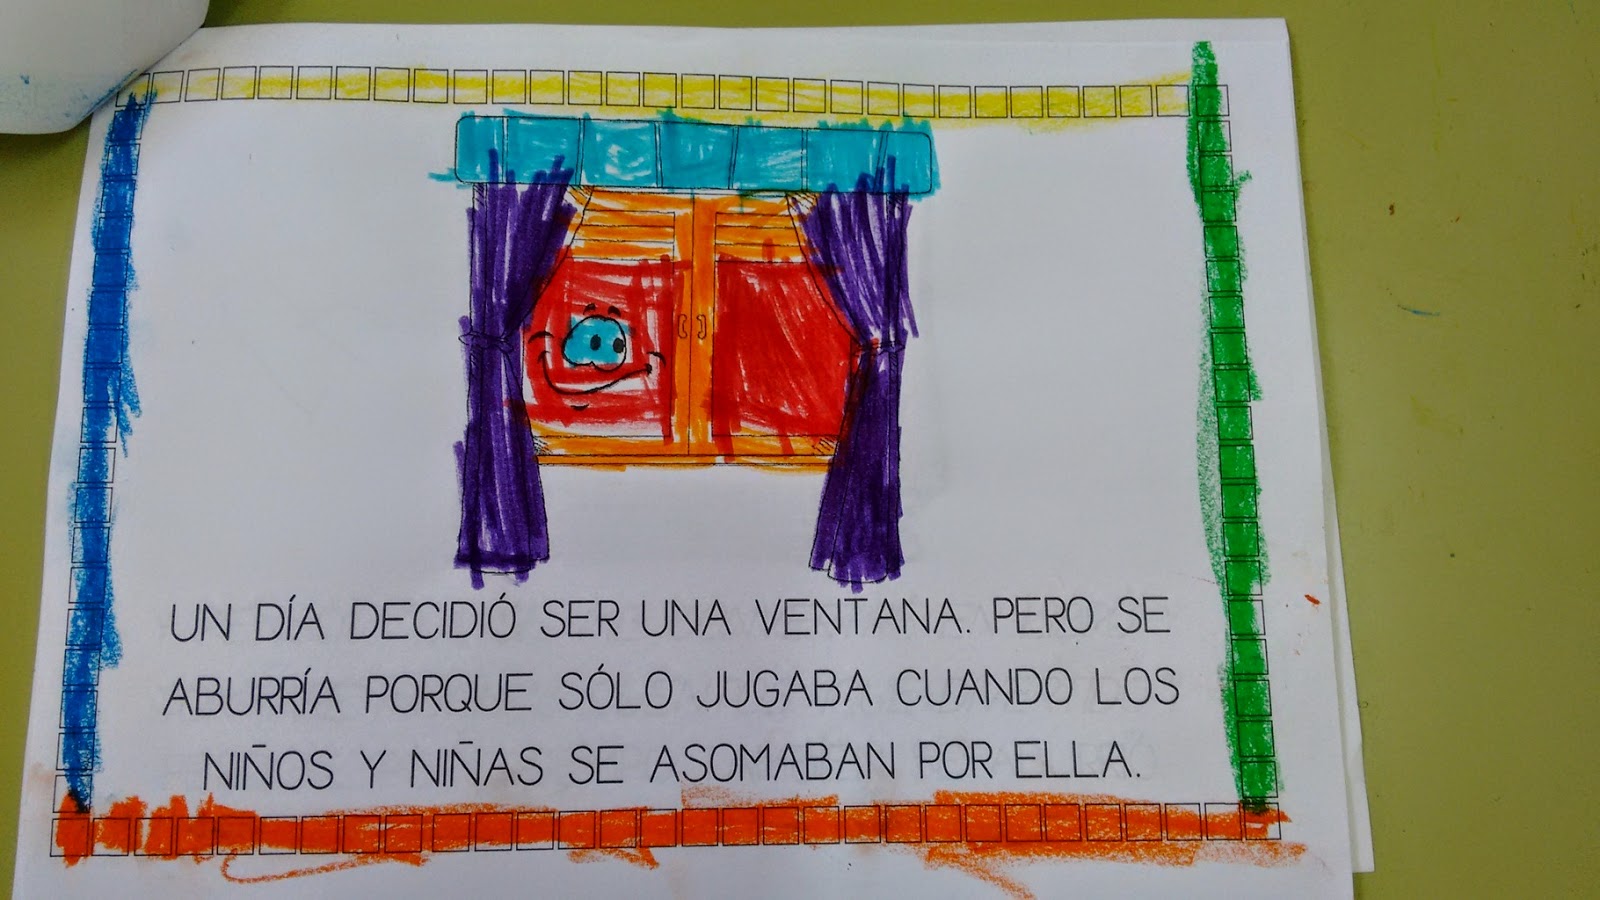 UN DÍA DECIDIÓ SER UNA VENTANA. PERO SE
ABURRÍA PORQUE SÓLO JUGABA CUANDO LOS
NIÑOS Y NIÑAS SE ASOMABAN POR ELLA.